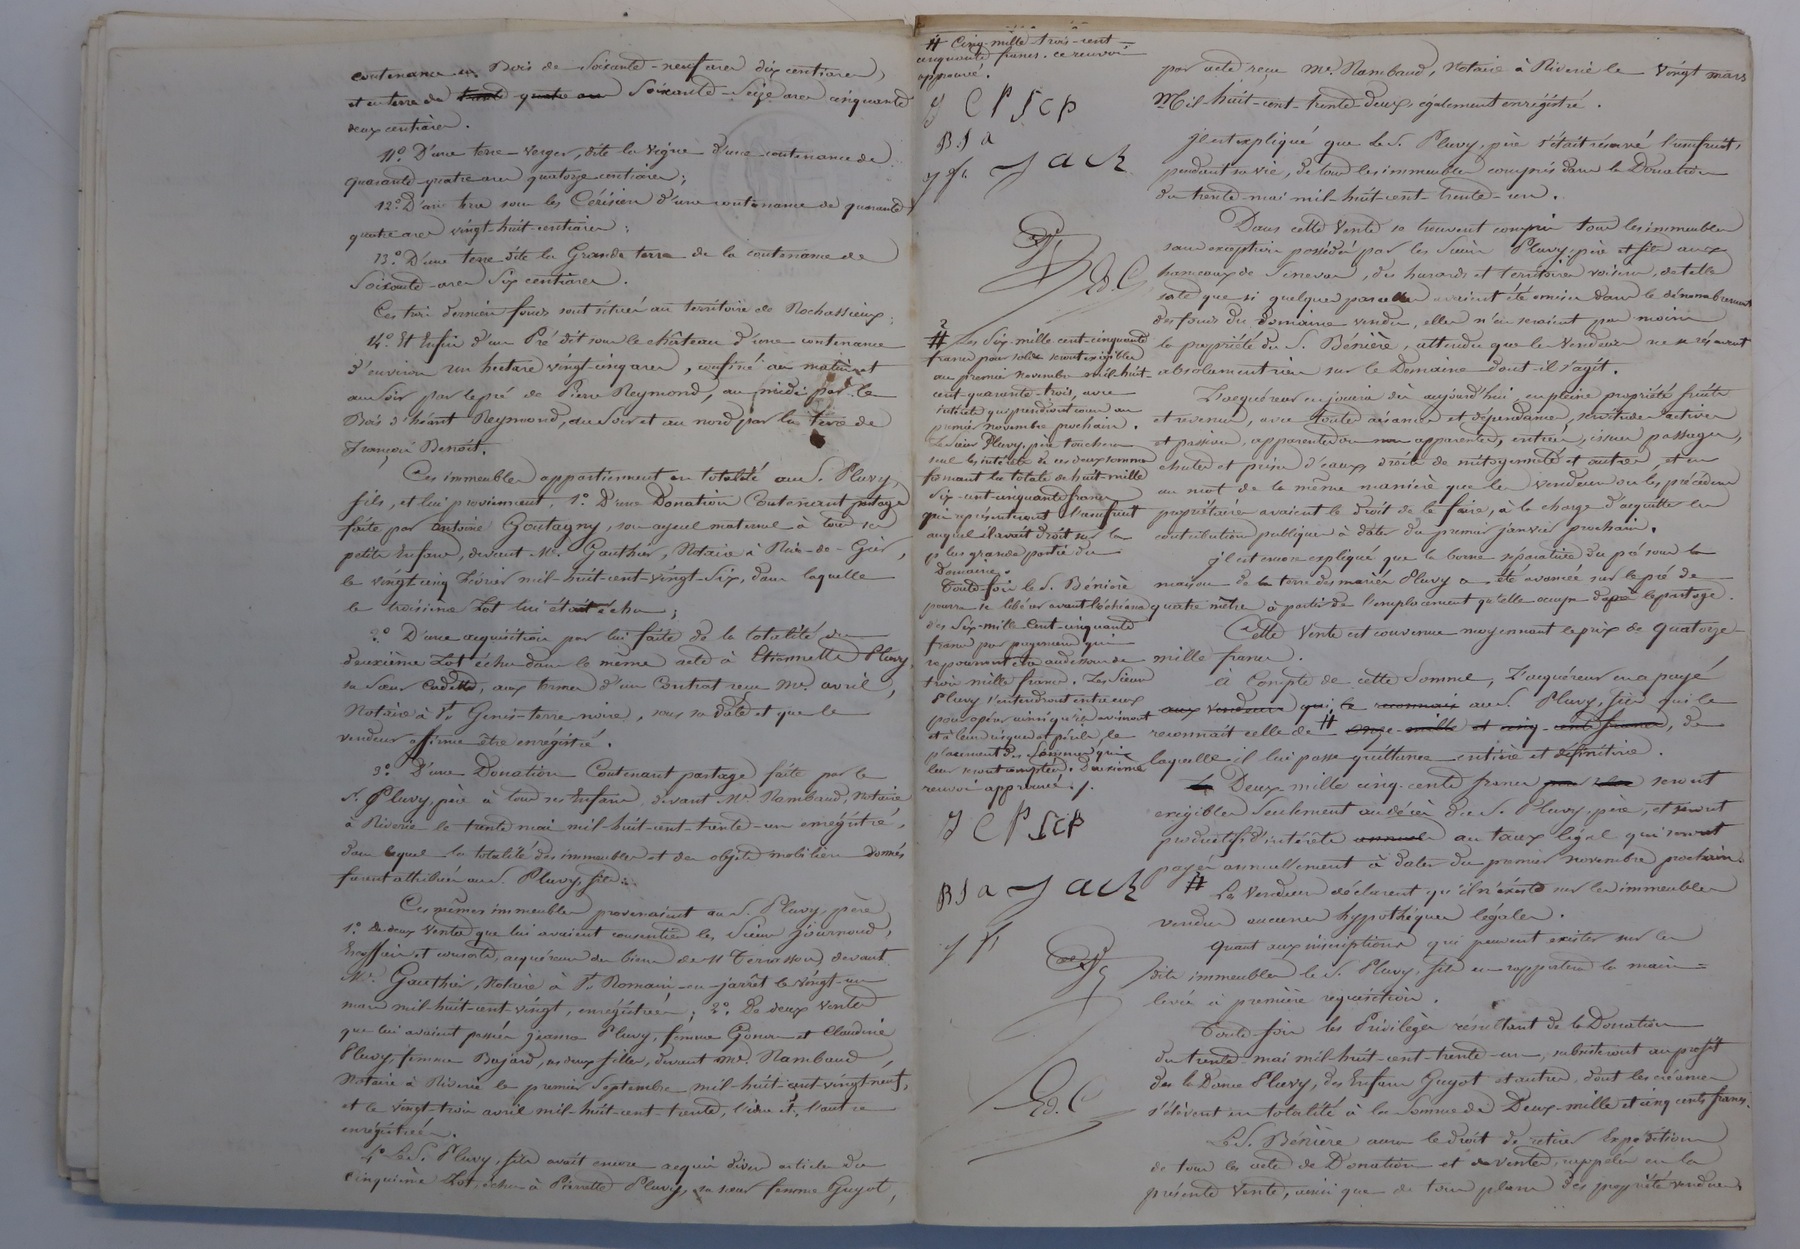 contenance en Bois de Soixante-neuf ares dix centiares,
et en terre de trente quatre ares Soixante-Seize ares cinquante
deux centiares.
11º. D'une terre-verger, dite la vigne d'une contenance de
quarante-quatre ares quatorze centiares;
12º. D'une terre sous les Cérisiers d'une contenance de quarante
quatre ares vingt-huit centiares;
13º. D'une terre dite la Grande terre de la contenance de
Soixante-ares Six centiares.
Ces trois derniers fonds sont situés au territoire de Rochassieux;
14º. Et Enfin d'un Pré dit sous le château d'une contenance
d'environ un hectare vingt-cinq ares, confiné au matin et
au soir par le pré de Pierre Reymond, au midi par le
Bois d'héant Reymond, au soir et au nord par la terre de
François Benoît.
Ces immeubles appartiennent en totalité au S. Pluvy,
fils, et lui proviennent, 1º. D'une Donation Contenant partage
faite par Antoine Goutagny, son ayeul maternel à tous ses
petits Enfans, devant Me. Gauthier, Notaire à Rive-de-Gier,
le vingt-cinq Février mil-huit-cent-vingt-six, dans laquelle
le troisième Lot lui était échu;
2º. D'une acquisition par lui faite de la totalité du
deuxième Lot échu dans le même acte à Etiennette Pluvy,
sa Sœur Cadette, aux termes d'un Contrat reçu Me. avril,
Notaire à St. Genis-terre-noire, sous sa date et que le
vendeur affirme être enrégistré.
3º. D'une Donation Contenant partage faite par le
S. Pluvy, père à tous ses Enfans devant Me. Rambaud, Notaire
à Riverie le trente mai mil-huit-cent-trente-un enrégistré,
dans lequel la totalité des immeubles et des objets mobiliers donnés
furent attribués au S. Pluvy, fils.
Ces mêmes immeubles provenaient au S. Pluvy, père
1º. de deux ventes que lui avaient consenties les Sieurs Journoud,
et consorts, acquéreurs des biens de Mr Terrasson, devant
Me. Gauthier, Notaire à St. Romain-en-jarrêt le vingt-un
mars mil-huit-cent-vingt, enrégistrées; 2º. De deux ventes
que lui avaient passées jeanne Pluvy, femme Gonon et Claudine
Pluvy, femme Bajard, ses deux filles, devant Me. Rambaud,
Notaire à Riverie le premier Septembre mil-huit-cent-vingt-neuf,
et le vingt-trois avril mil-huit-cent-trente, l'une et l'autre
enrégistrées.
4º. Le S. Pluvy, fils avait encore acquis divers articles du
cinquième Lot, échu à Pierrette Pluvy, sa sœur femme Guyot,
# Cinq-mille trois-cent-
cinquante francs. ce renvoi
approuvé.
J C P J C P
B J A
J A C R
Ed. C
2
# Les Six-mille cent-cinquante
francs pour solde seront exigibles
au premier novembre mil-huit-
cent-quarante-trois, avec
intérêts qui prendront cours au
premier novembre prochain.
Le sieur Pluvy, père touchera
seul les intérêts de ces deux sommes
formant la totale de huit-mille
Six-cent-cinquante francs
qui représenteront l'usufruit
auquel il avait droit sur la
plus grande partie du
Domaine.
Toute-fois le S. Bénière
pourra se libérer avant l'échéance
des Six-mille Cent-cinquante
francs par payemens qui
ne pourront être au dessous de
trois mille francs. Les Sieurs
Pluvy s'entendront entr'eux
pour opérer ainsi qu'ils aviseront
et à leurs risques et périls, le
placement des Sommes qui
leur seront comptées. Deuxième
renvoi approuvé./.
J C P J C P
B J A J A C R
Ed. C
par acte reçu Me. Rambaud, Notaire à Riverie le vingt mars
Mil-huit-cent-trente-deux, également enrégistré.
Il est expliqué que le S. Pluvy, père s'était réservé l'usufruit,
pendant sa vie, de tous les immeubles compris dans la Donation
du trente-mai mil-huit-cent-trente-un.
Dans cette Vente se trouvent compris tous les immeubles
sans exception possédés par les Sieurs Pluvy, père et fils aux
hameaux de Senevas, des hurards et territoires voisins, de telle
sorte que si quelques parcelles avaient été omises dans le dénombrement
des fonds du domaine vendu, elles n'en seraient pas moins
la propriété du S. Bénière, attendu que les Vendeurs ne se réservent
absolument rien sur le Domaine dont il s'agit.
L'acquéreur en jouira dès aujourd'hui, en pleine propriété, fruits
et revenus, avec toutes aisances et dépendances, servitudes actives
et passives, apparentes ou non apparentes, entrées, issues, passages,
chutes et prises d'eaux, droits de mitoyenneté et autres, et en
un mot de la même manière que les vendeurs ou les précédens
propriétaires avaient le droit de le faire, à la charge d'acquitter les
contributions publiques à dater du premier janvier prochain.
Il est encore expliqué que la borne séparative du pré sous la
maison de la terre des mariés Pluvy a été avancée sur le pré de
quatre mètres à partir de l'emplacement qu'elle occupe d'après le partage.
Cette Vente est convenue moyennant le prix de quatorze-
mille francs.
A Compte de cette Somme, L'acquéreur en a payé
aux vendeurs qui le reconnais au S. Pluvy, fils qui le
reconnait celle de # onze-mille et cinq-cent francs, de
laquelle il lui passe quittance entière et définitive.
Les Deux mille cinq-cents francs seront
exigibles seulement au décès du S. Pluvy, père, et seront
productifs d'intérêts annuels au taux légal qui seront
payés annuellement à dater du premier novembre prochain.
# Les Vendeurs déclarent qu'il n'éxiste sur les immeubles
vendus aucunes hypothèques légales.
Quant aux inscriptions qui peuvent exister sur les
dits immeubles le S. Pluvy, fils en rapportera la main=
levée à première requisition.
Toute-fois les Privilèges résultant de la Donation
du trente mai mil-huit-cent-trente-un, subsisteront au profit
de la Dame Pluvy, des Enfans Guyot et autres, dont les créances
s'élèvent en totalité à la Somme de Deux-mille et cinq cents francs.
Le S. Bénière aura le droit de retirer Expéditions
de tous les actes de Donation et de ventes, rappelés en la
présente Vente, ainsi que de tous plans des propriétés vendues